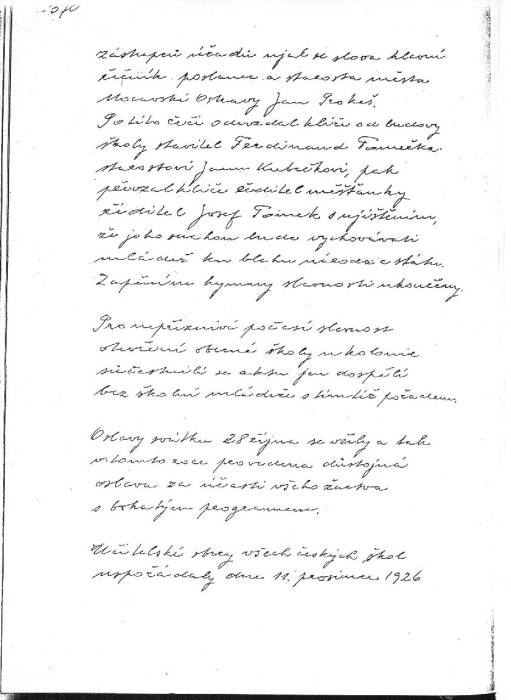 zástupců úřadů ujal se slova hlavní
řečník poslanec a starosta města
Moravské Ostravy Jan Prokeš.
Po této řeči odevzdal klíče od budovy
školy stavitel Ferdinand Tomečka
starostovi Janu Kubečkovi, pak
převzal klíče ředitel měšťanky
ředitel Josef Tomek s ujištěním,
že jeho snahou bude vychovávati
mládež ku blahu národa a státu.
Zapěním hymny slavnosti ukončeny.
Pro nepříznivé počasí slavnost
otevření obecné školy u kolonie
súčastnili se aktu jen dospělí
bez školní mládeže s tímtéž pořadem.
Oslavy svátku 28 října se vžily a tak
v tomto roce provedena důstojná
oslava za účasti všeho žactva
s bohatým programem.
Učitelské sbory všech českých škol
uspořádaly dne 11. prosince 1926